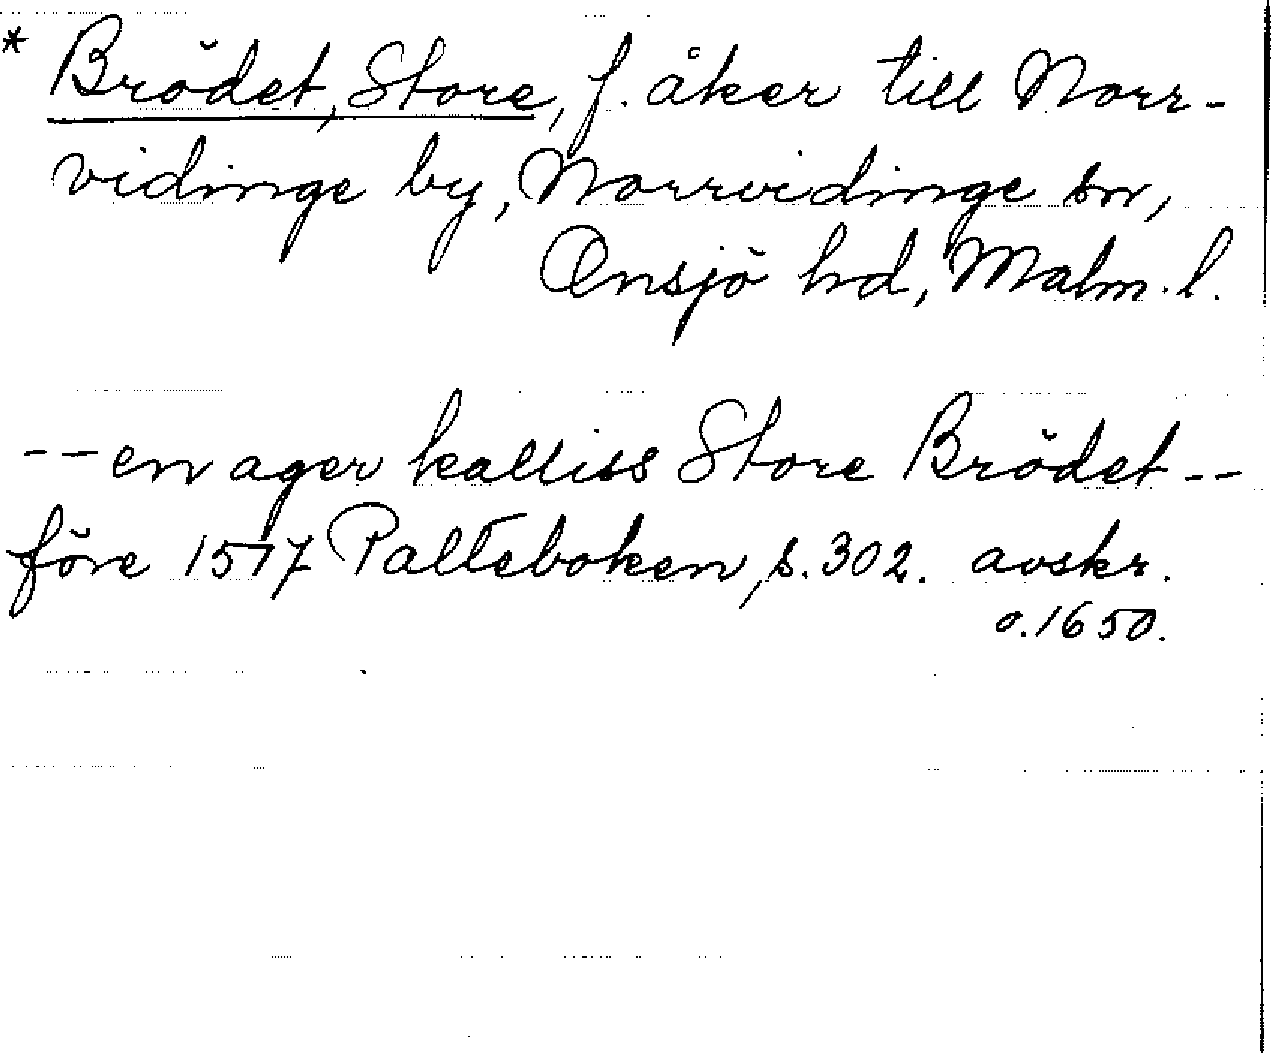 * Brödet, Store, f. åker till Norr-
vidinge by, Norrvidinge sn,
Onsjö hd, Malm. l.
-- en ager kalliss Store Brödet --
före 1517 Palteboken, s. 302. avskr.
o. 1650.